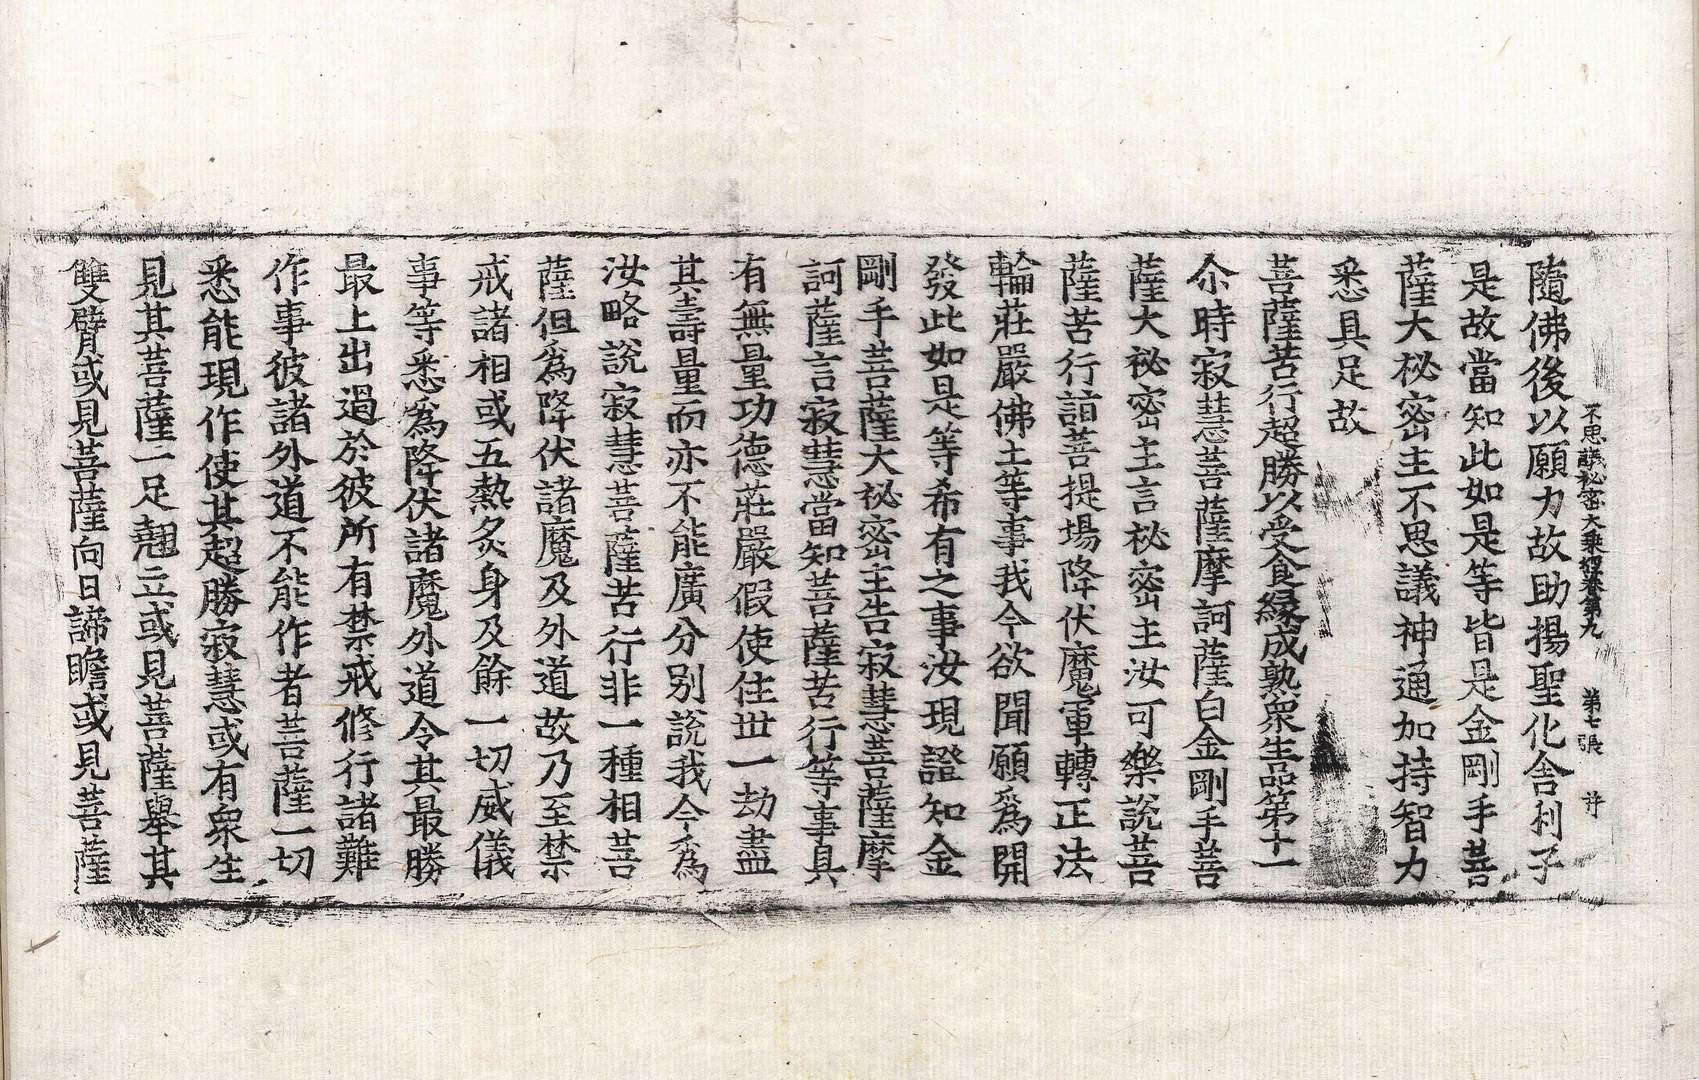 不思議祕密大乘經卷第九　第七張　許
隨佛後以願力故助揚聖化舍利子
是故當知此如是等皆是金剛手菩
薩大秘密主不思議神通加持智力
悉具足故
菩薩苦行超勝以受食緣成熟衆生品第十一
尒時寂慧菩薩摩訶薩白金剛手菩
薩大祕密主言祕密主汝可樂說菩
薩苦行詣菩提場降伏魔軍轉正法
輪莊嚴佛土等事我今欲聞願爲開
發此如是等希有之事汝現證知金
剛手菩薩大祕密主告寂慧菩薩摩
訶薩言寂慧當知菩薩苦行等事具
有無量功德莊嚴假使住世一劫盡
其壽量而亦不能廣分別說我今爲
汝略說寂慧菩薩苦行非一種相菩
薩但爲降伏諸魔及外道故乃至禁
戒諸相或五熱炙身及餘一切威儀
事等悉爲降伏諸魔外道令其最勝
最上出過於彼所有禁戒修行諸難
作事彼諸外道不能作者菩薩一切
悉能現作使其超勝寂慧或有衆生
見其菩薩一足翹立或見菩薩舉其
雙臂或見菩薩向日諦瞻或見菩薩